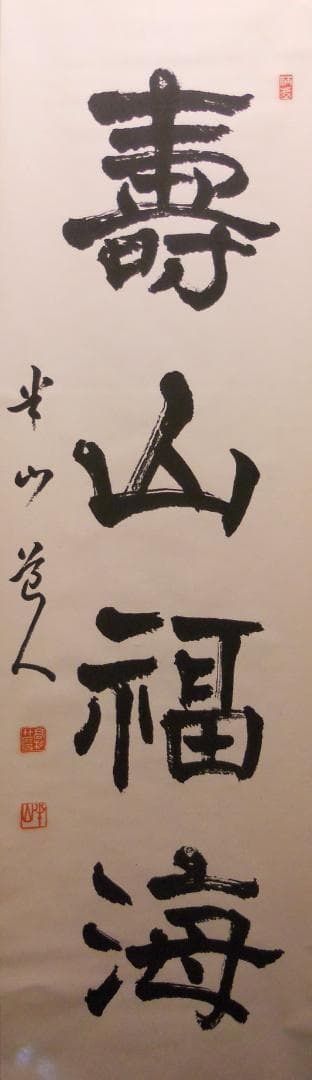 壽山福海
半山道人
半山